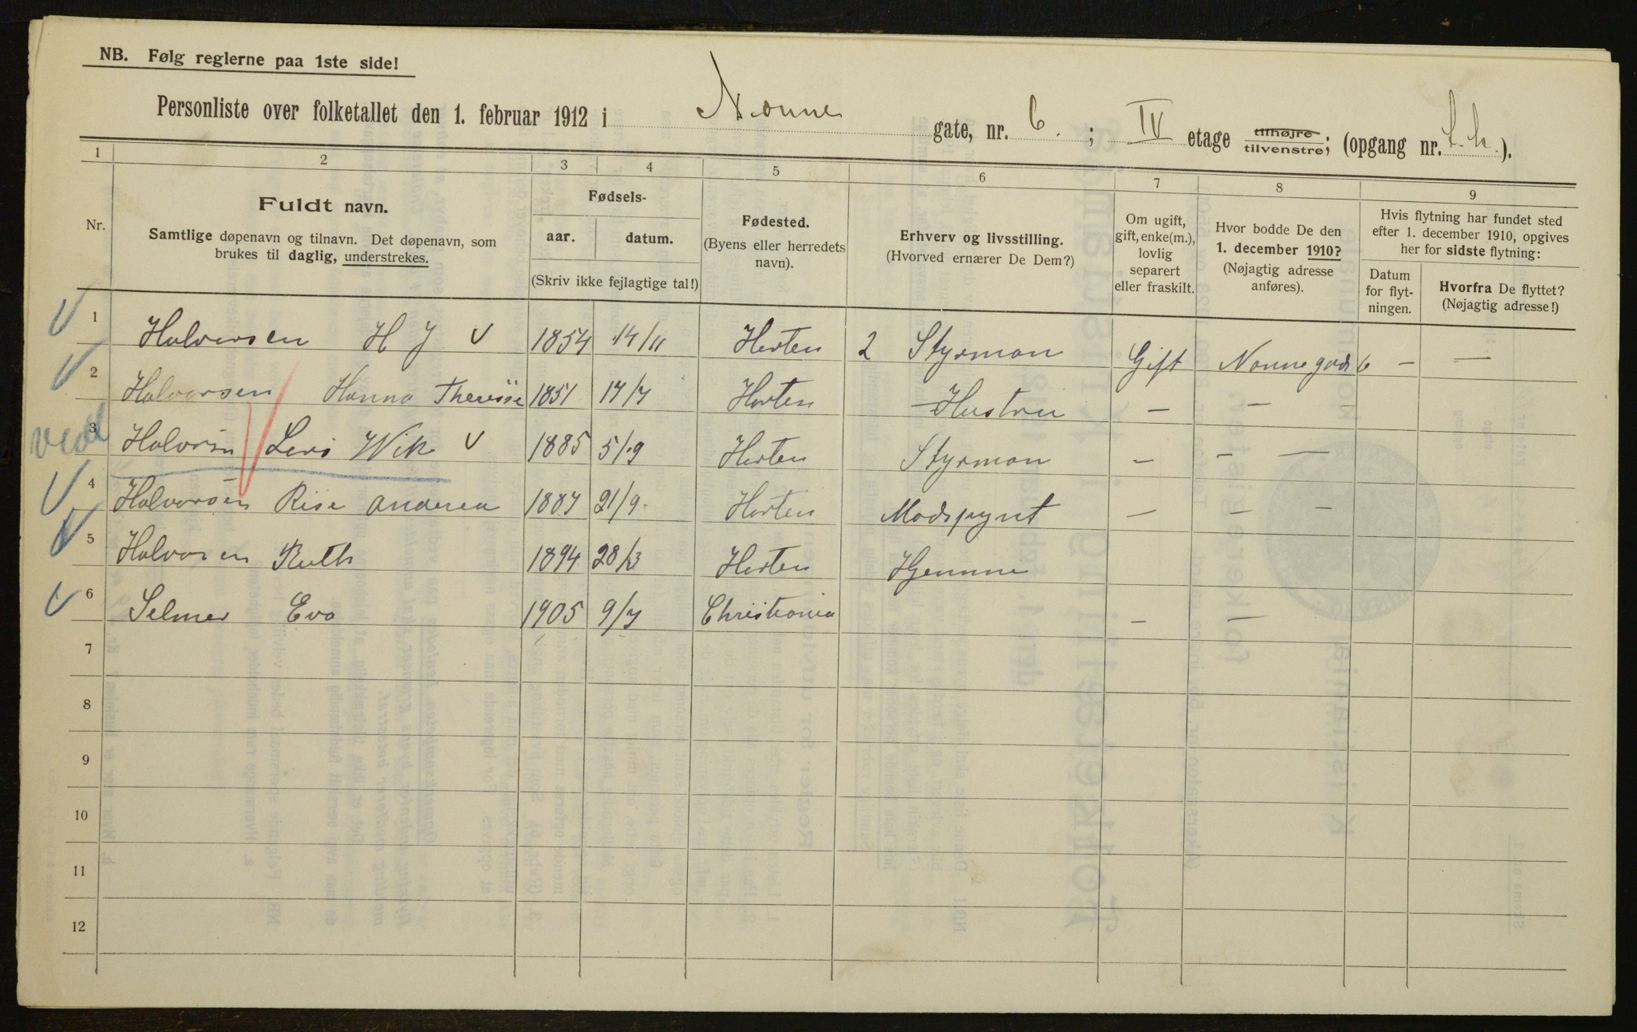 NB. Følg reglerne paa 1ste side!
Personliste over folketallet den 1. februar 1912 i Nonne gate, nr. 6. ; IV etage tilhøjre tilvenstre; (opgang nr. t.h.).
1 2 3 4 5 6 7 8 9
Nr.
Fuldt navn.
Samtlige døpenavn og tilnavn. Det døpenavn, som
brukes til daglig, understrekes.
Fødsels-
aar. datum.
(Skriv ikke fejlagtige tal!)
Fødested.
(Byens eller herredets
navn).
Erhverv og livsstilling.
(Hvorved ernærer De Dem?)
Om ugift,
gift, enke(m.),
lovlig
separert
eller fraskilt.
Hvor bodde De den
1. december 1910?
(Nøjagtig adresse
anføres).
Hvis flytning har fundet sted
efter 1. december 1910, opgives
her for sidste flytning:
Datum
for flyt-
ningen.
Hvorfra De flyttet?
(Nøjagtig adresse!)
1 Halvorsen H J V 1854 14/11 Horten 2 Styrman Gift Nonnegade 6 — —
2 Halvorsen Hanna Theresse 1851 17/7 Horten Hustru — —
3 Halvorsen Wik V 1885 5/9 Horten Styrman — — —
4 Halvorsen Rise Anderea 1887 21/9 Horten Modspynt — — —
5 Halvorsen Ruth 1894 28/3 Horten Hjemme
6 Selmer Eva 1905 9/7 Christiania — —
7
8
9
10
11
12